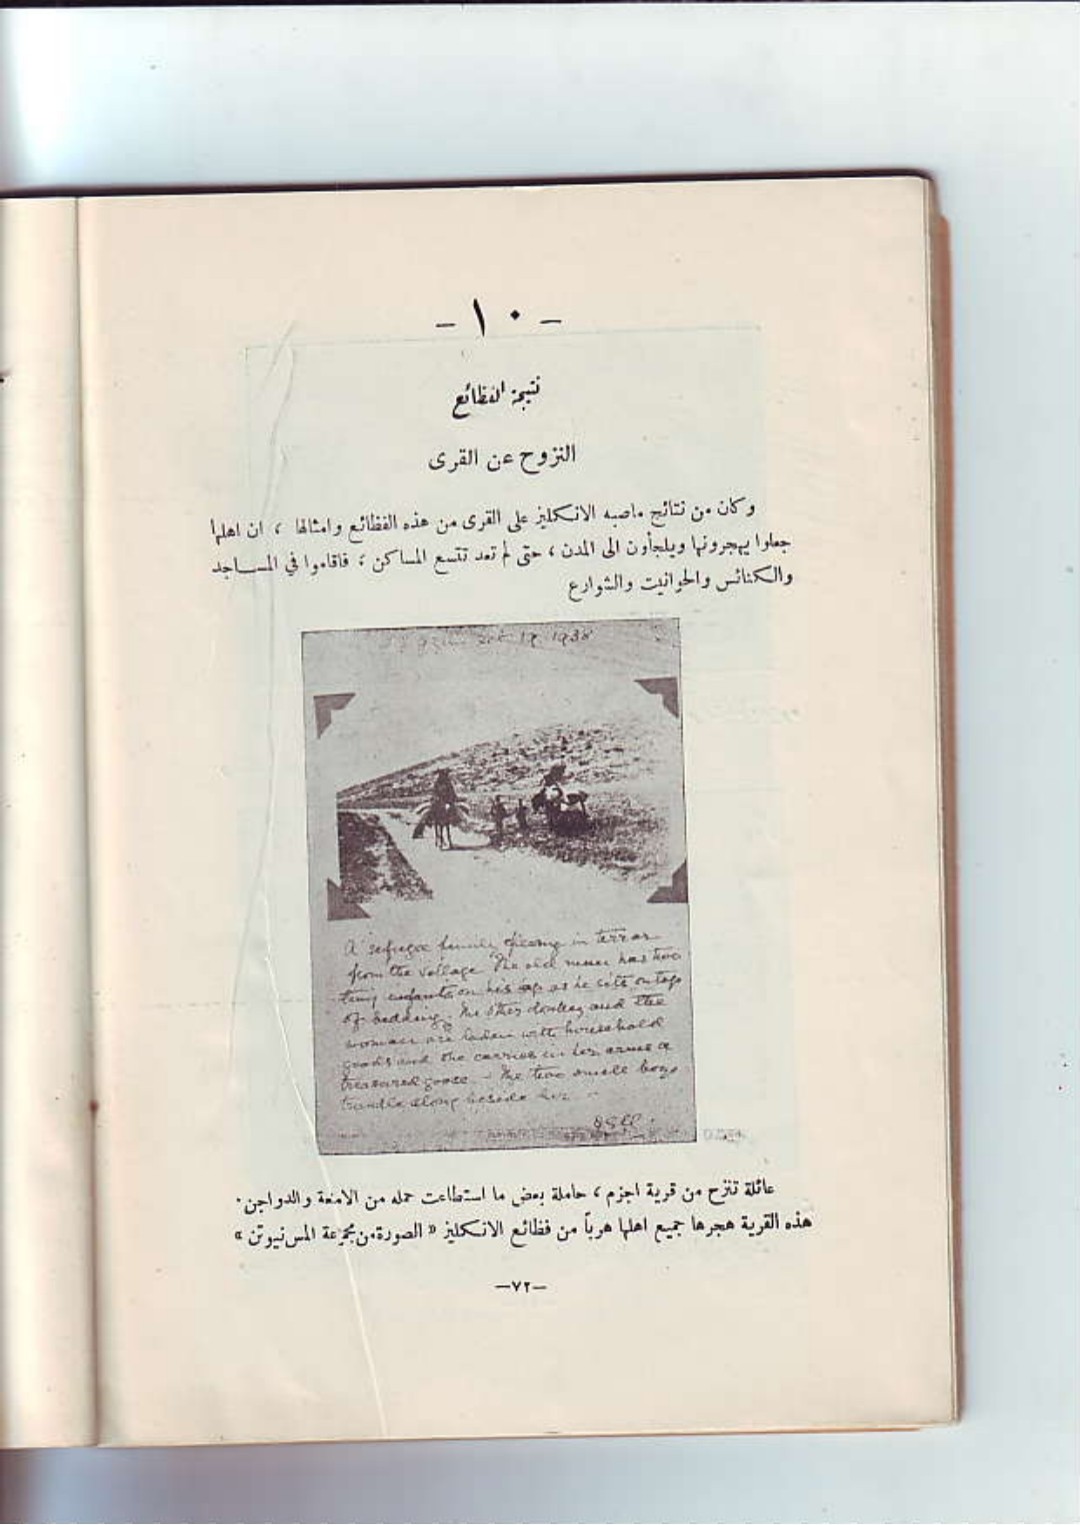 - ١٠ -
نتيجة الفظائع
النزوح عن القرى
وكان من نتائج ماصبه الانكليز على القرى من هذه الفظائع وامثالها ، ان اهلها
جعلوا يهجرونها ويلجأون الى المدن ، حتى لم تعد تتسع المساكن ، فاقاموا في المساجد
والكنائس والحوانيت والشوارع
19 1938
A refugee family fleeing in terror
from the village. The old man has two
tiny infants on his lap as he sits on top
of bedding. The other donkey and the
woman are laden with household
goods and she carries in her arms a
treasured goose. - The two small boys
trundle along beside her -
عائلة تنزح من قرية اجزم ، حاملة بعض ما استطاعت حمله من الامتعة والدواجن .
هذه القرية هجرها جميع اهلها هرباً من فظائع الانكليز « الصورة من مجموعة المس نيوتن »
—٧٢—